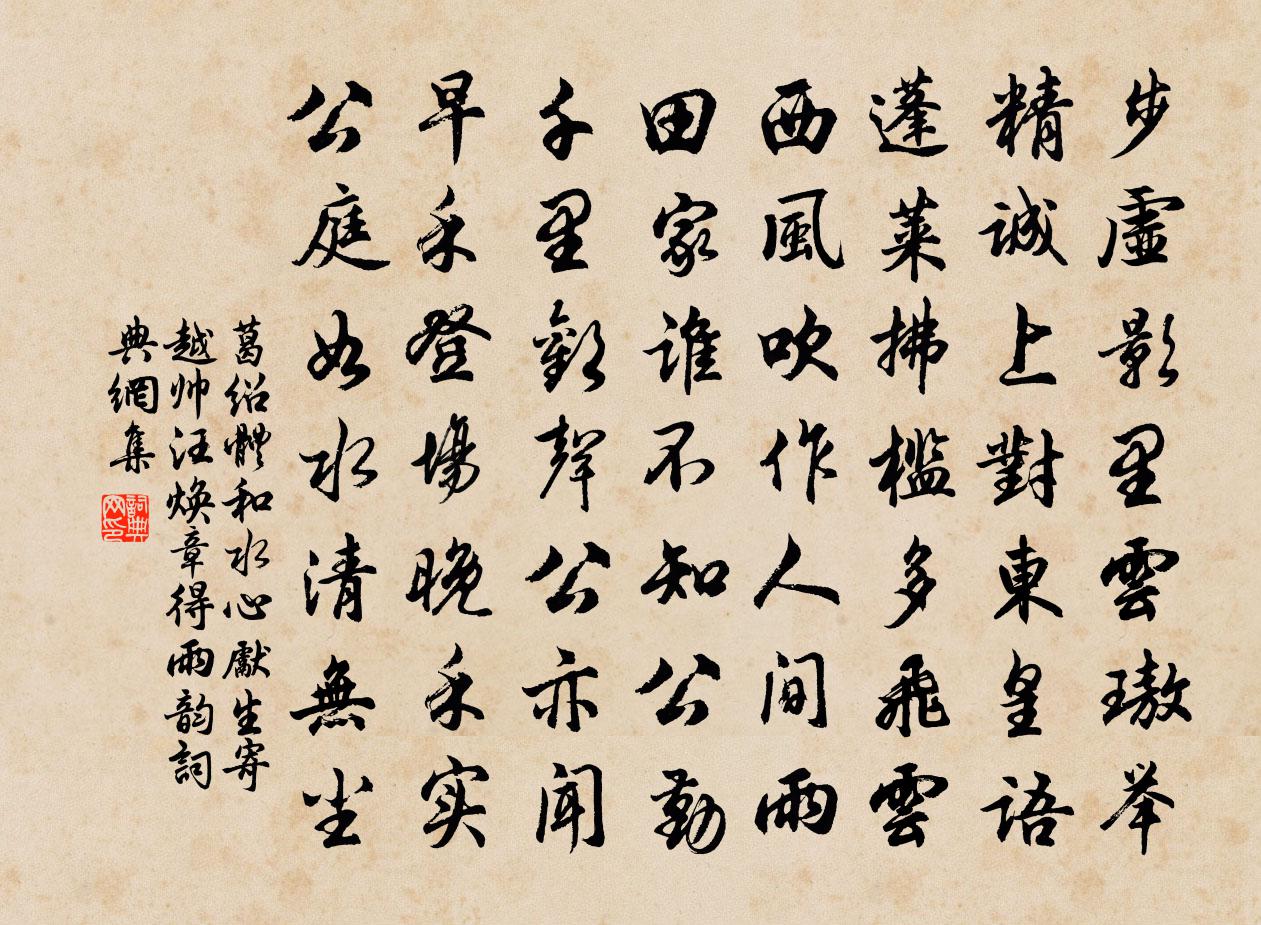 步虛影里雲璈举
精誠上對東皇語
蓬萊拂檻多飛雲
西風吹作人间雨
田家谁不知公勤
千里歡聲公亦闻
早禾登場晚禾实
公庭如水清無尘
葛绍體和水心獻生寄
越帅汪焕章得雨韵詞
典網集
詞典
网印